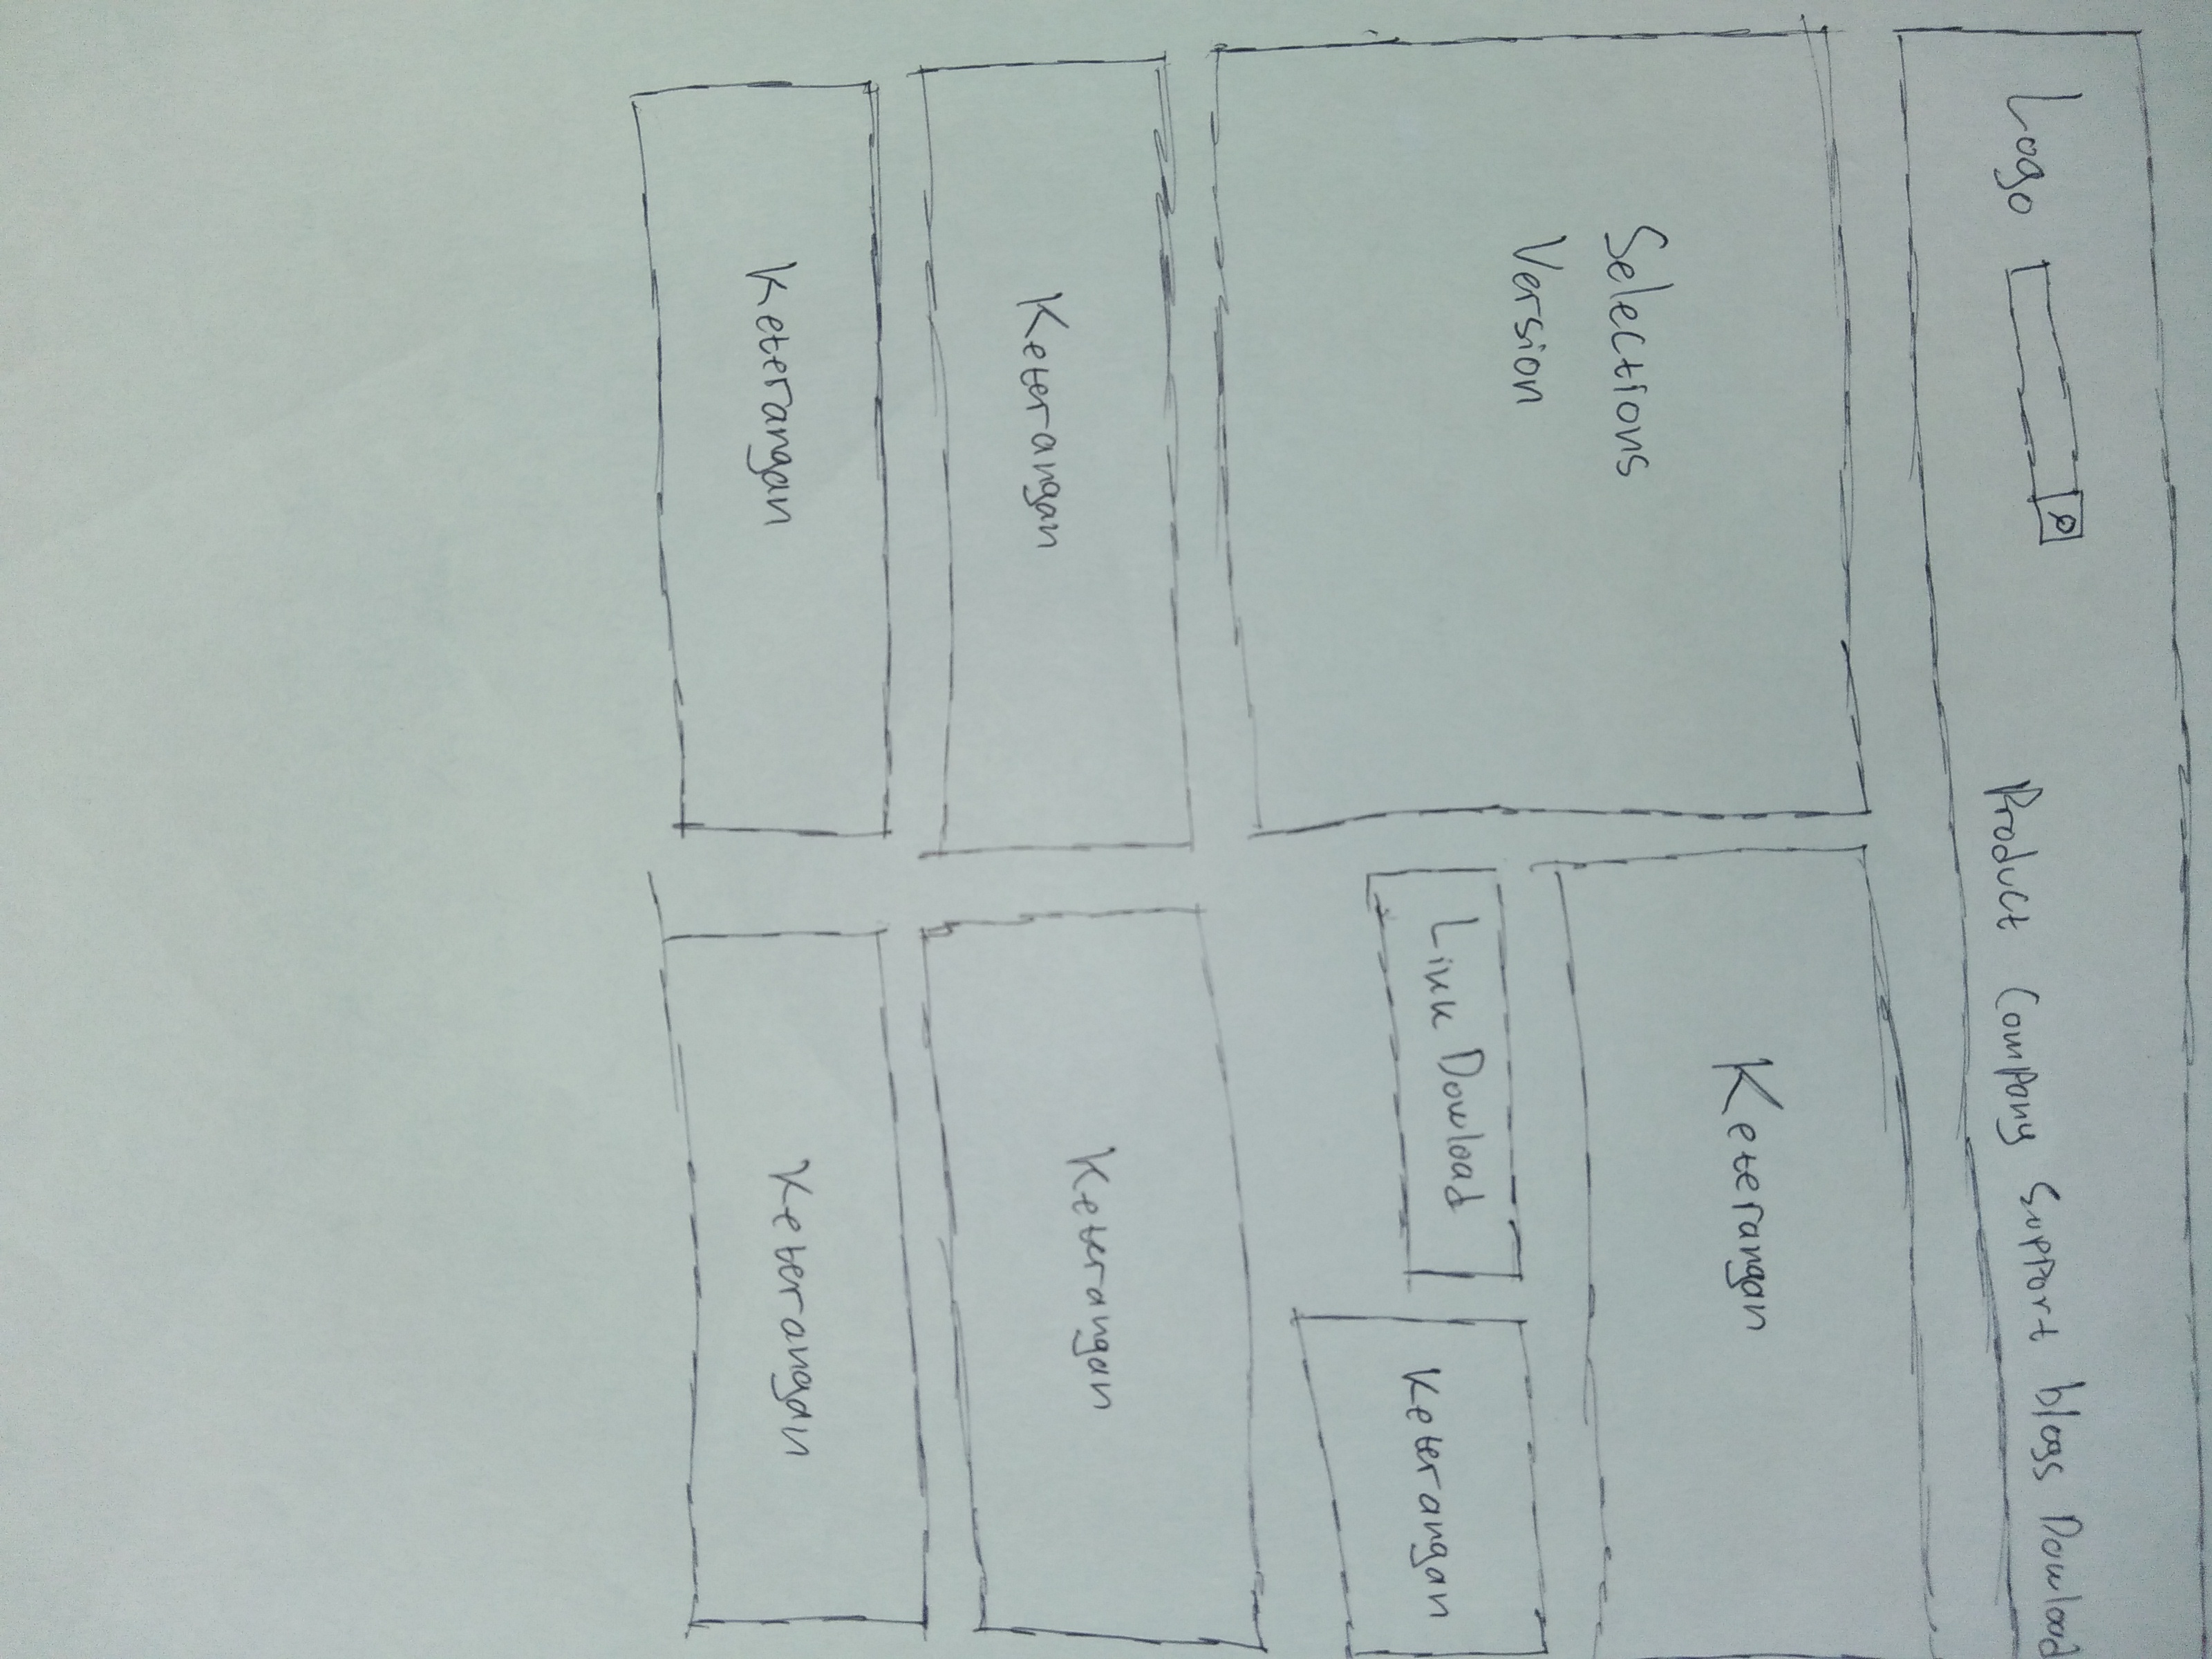 Logo
Product Company Support blogs Dowload
Selections
Version
Keterangan
Link Dowload
Keterangan
Keterangan
Keterangan
Keterangan
Keterangan